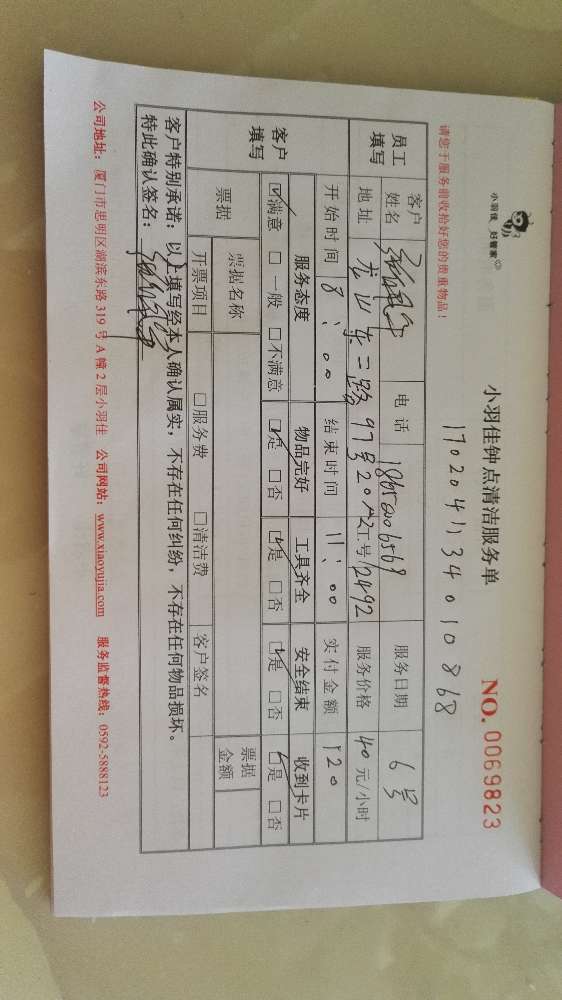 小羽佳 好管家
小羽佳钟点清洁服务单
NO. 0069823
1702041134010868
请您于服务前收拾好您的贵重物品！
员工填写 客户姓名 电话 服务日期 6号
地址 龙山东二路97号20 工号 12492 服务价格 40元/小时
开始时间 8:00 结束时间 11:00 实付金额 120
客户填写 服务态度 物品完好 工具齐全 安全结束 收到卡片
☑满意 □一般 □不满意 ☑是 □否 ☑是 □否 ☑是 □否 ☑是 □否
票据 票据名称 票据金额
开票项目 □服务费 □清洁费 客户签名
客户特别承诺：以上填写经本人确认属实，不存在任何纠纷，不存在任何物品损坏。
特此确认签名：
公司地址：厦门市思明区湖滨东路319号A幢2层小羽佳 公司网站：www.xiaoyujia.com 服务监督热线：0592-5888123